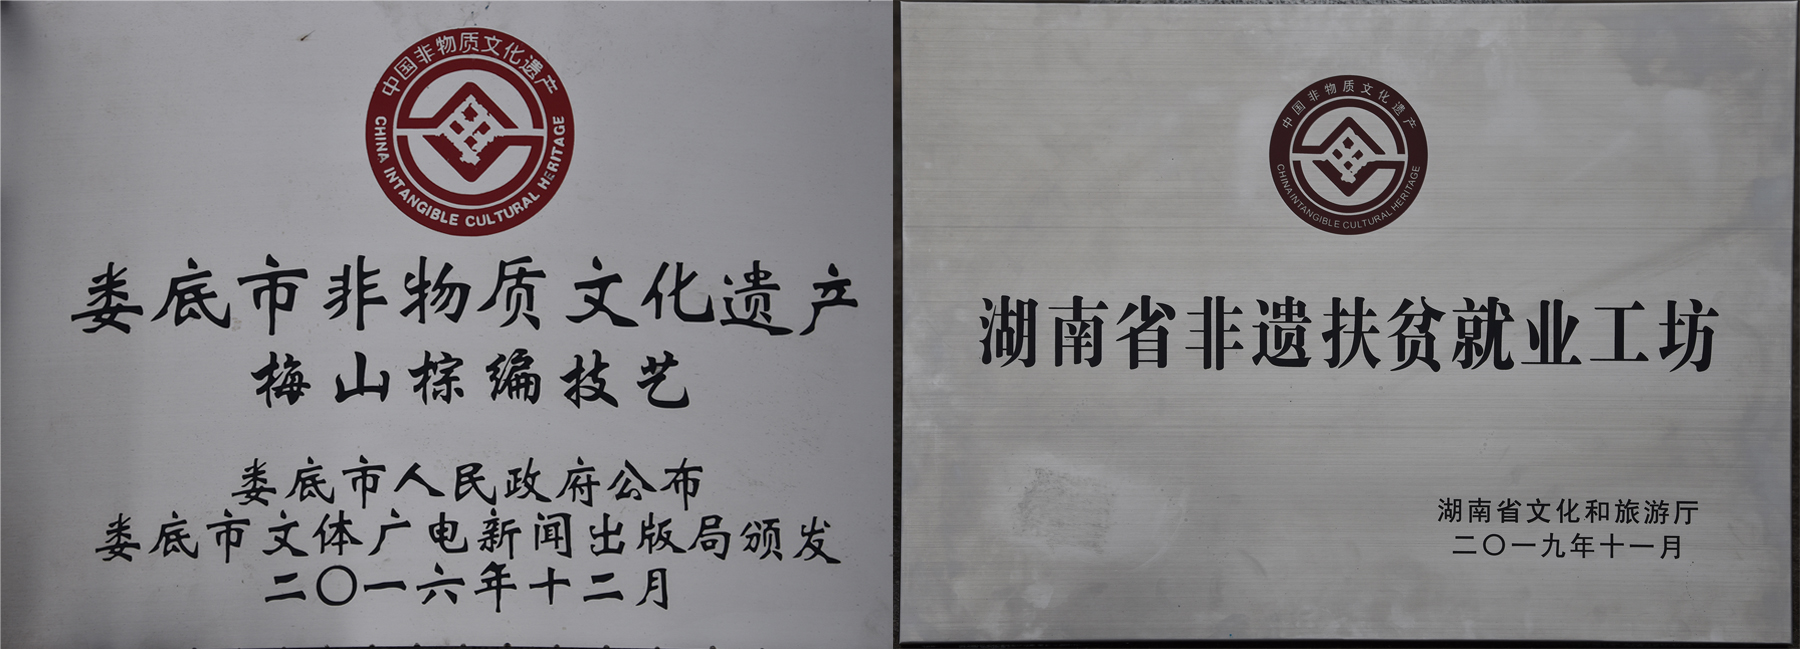 中国非物质文化遗产
CHINA INTANGIBLE CULTURAL HERITAGE
娄底市非物质文化遗产
梅山棕编技艺
娄底市人民政府公布
娄底市文体广电新闻出版局颁发
二〇一六年十二月
中国非物质文化遗产
CHINA INTANGIBLE CULTURAL HERITAGE
湖南省非遗扶贫就业工坊
湖南省文化和旅游厅
二〇一九年十一月